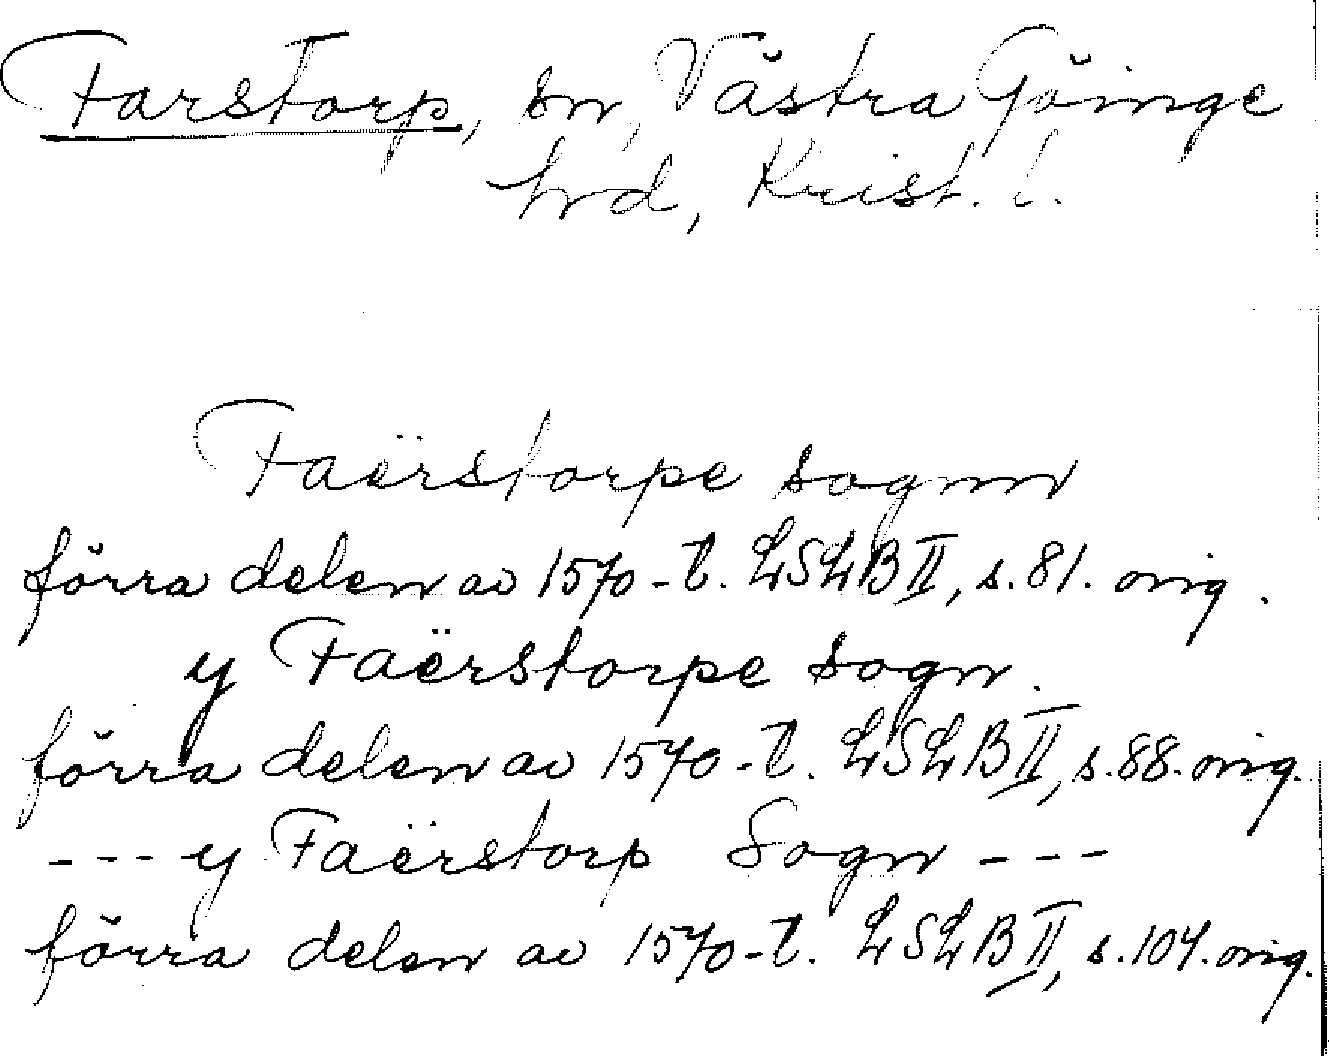 Farstorp, sn, Västra Göinge
hrd, Krist. l.
Faërstorpe sognn
förra delen av 1570-t. LSLB II, s. 81. orig.
y Faërstorpe sogn.
förra delen av 1570-t. LSLB II, s. 88. orig.
--- y Faërstorp Sogn ---
förra delen av 1570-t. LSLB II, s. 104. orig.